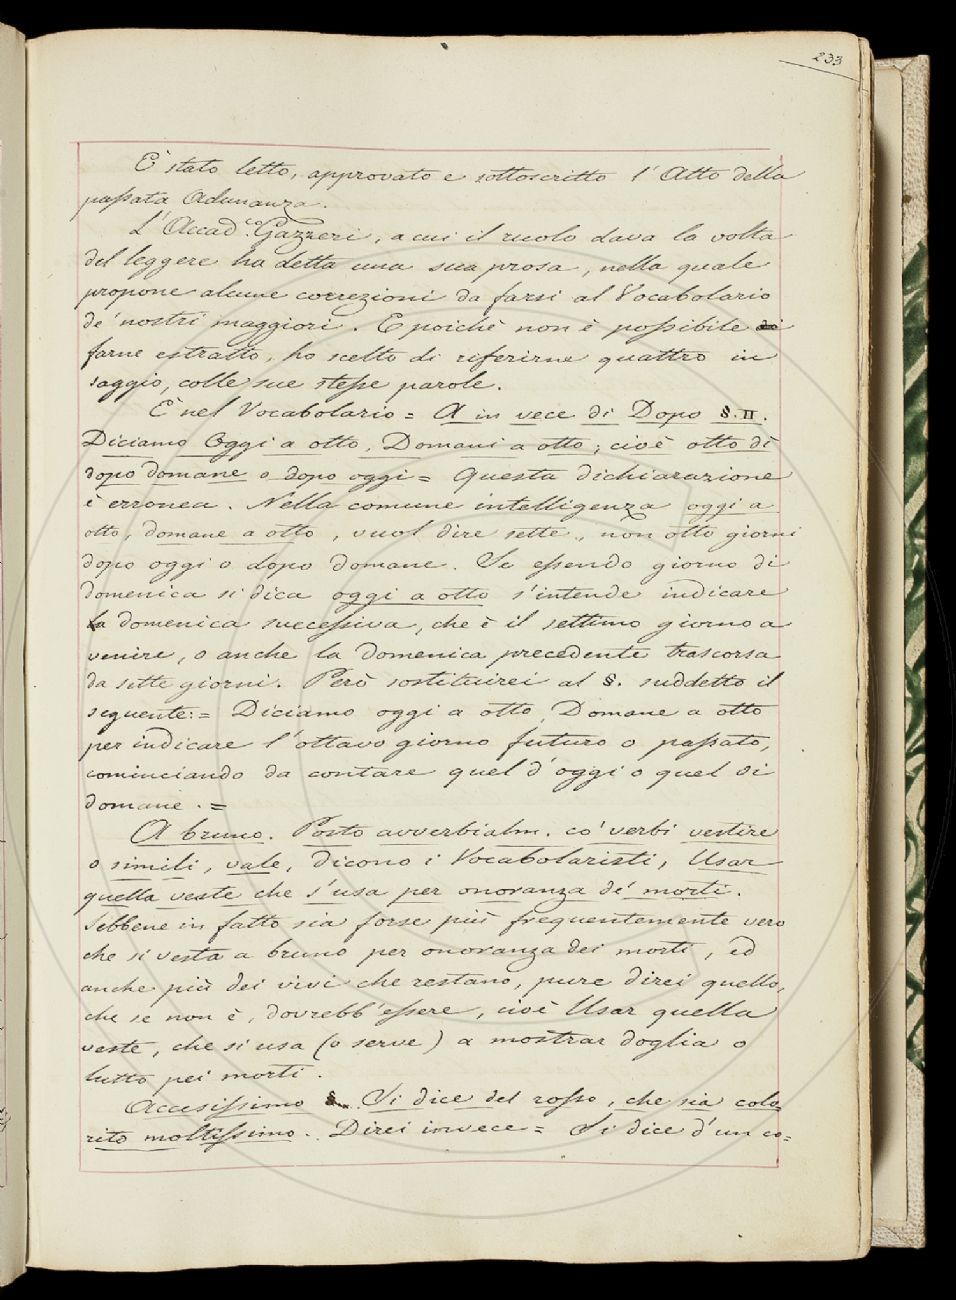 233
È stato letto, approvato e sottoscritto l'Atto della
passata Adunanza.
L'Accad.co Gazzeri, a cui il ruolo dava la volta
del leggere ha detta una sua prosa, nella quale
propone alcune correzioni da farsi al Vocabolario
de' nostri maggiori. E poichè non è possibile di
farne estratto, ho scelto di riferirne quattro in
saggio, colle sue stesse parole.
È nel Vocabolario = A in vece di Dopo §. II.
Diciamo Oggi a otto, Domani a otto; cioè otto dì
dopo domane o dopo oggi = Questa dichiarazione
è erronea. Nella comune intelligenza oggi a
otto, domane a otto, vuol dire sette, non otto giorni
dopo oggi o dopo domane. Se essendo giorno di
domenica si dica oggi a otto s'intende indicare
la domenica successiva, che è il settimo giorno a
venire, o anche la domenica precedente trascorsa
da sette giorni. Però sostituirei al §. suddetto il
seguente: = Diciamo oggi a otto, Domane a otto
per indicare l'ottavo giorno futuro o passato,
cominciando da contare quel d'oggi o quel di
domane. =
A bruno. Posto avverbialm. co' verbi vestire
o simili, vale, dicono i Vocabolaristi, Usar
quella veste che s'usa per onoranza de' morti.
Sebbene in fatto sia forse più frequentemente vero
che si vesta a bruno per onoranza dei morti, ed
anche più dei vivi che restano, pure direi quello,
che se non è, dovrebb'essere, cioè Usar quella
veste, che si usa (o serve) a mostrar doglia o
lutto pei morti.
Accesissimo §. Si dice del rosso, che sia colo=
rito moltissimo. Direi invece = Si dice d'un co=